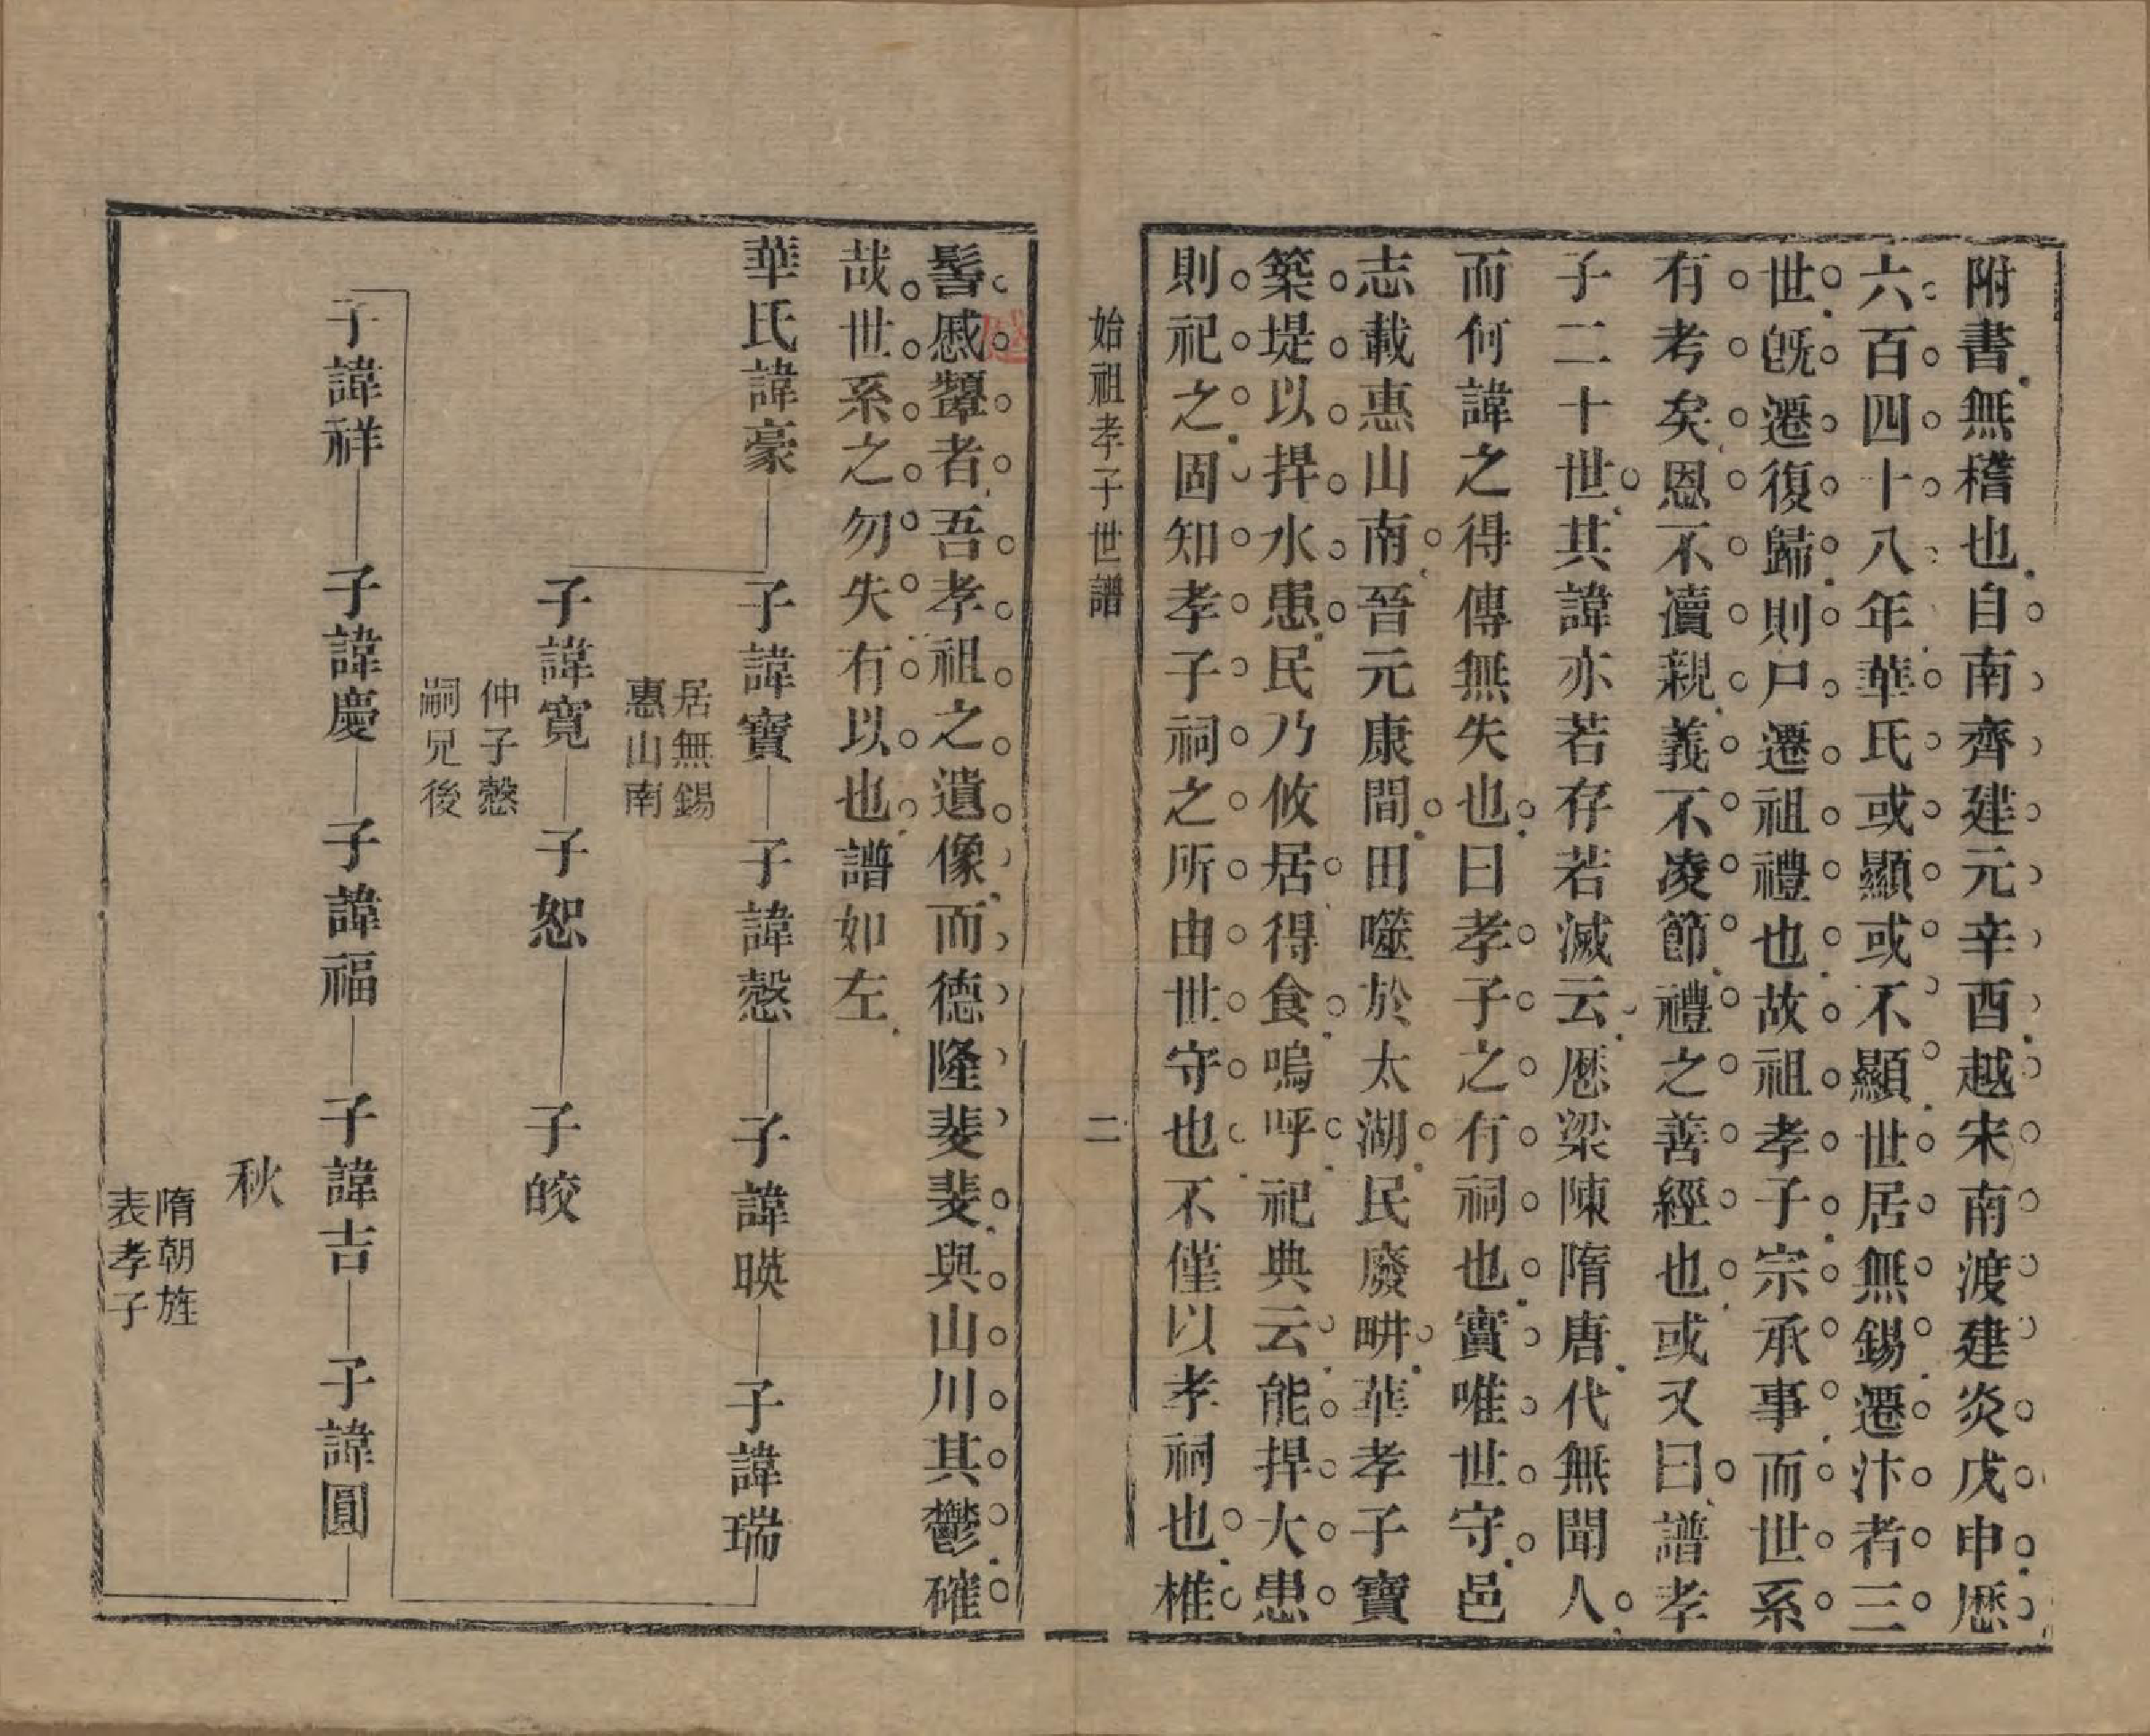 附書無稽也自南齊建元辛酉越宋南渡建炎戊申歷
六百四十八年華氏或顯或不顯世居無錫遷汴者三
世旣遷復歸則尸遷祖禮也故祖孝子宗承事而世系
有考矣恩不瀆親義不凌節禮之善經也或又曰譜孝
子二十世其諱亦若存若滅云歷梁陳隋唐代無聞人
而何諱之得傳無失也曰孝子之有祠也實唯世守邑
志載惠山南晉元康間田噬於太湖民廢畊華孝子寶
築堤以捍水患民乃攸居得食嗚呼祀典云能捍大患
則祀之固知孝子祠之所由世守也不僅以孝祠也椎
始祖孝子世譜
二
髻慼顰者吾孝祖之遺像而德隆斐斐與山川其鬱確
哉世系之勿失有以也譜如左
華氏諱豪 子諱寶 子諱愨 子諱暎 子諱瑞
居無錫
惠山南
子諱寬 子恕 子皎
仲子愨
嗣兄後
子諱祥 子諱慶 子諱福 子諱吉 子諱圓
秋
隋朝旌
表孝子